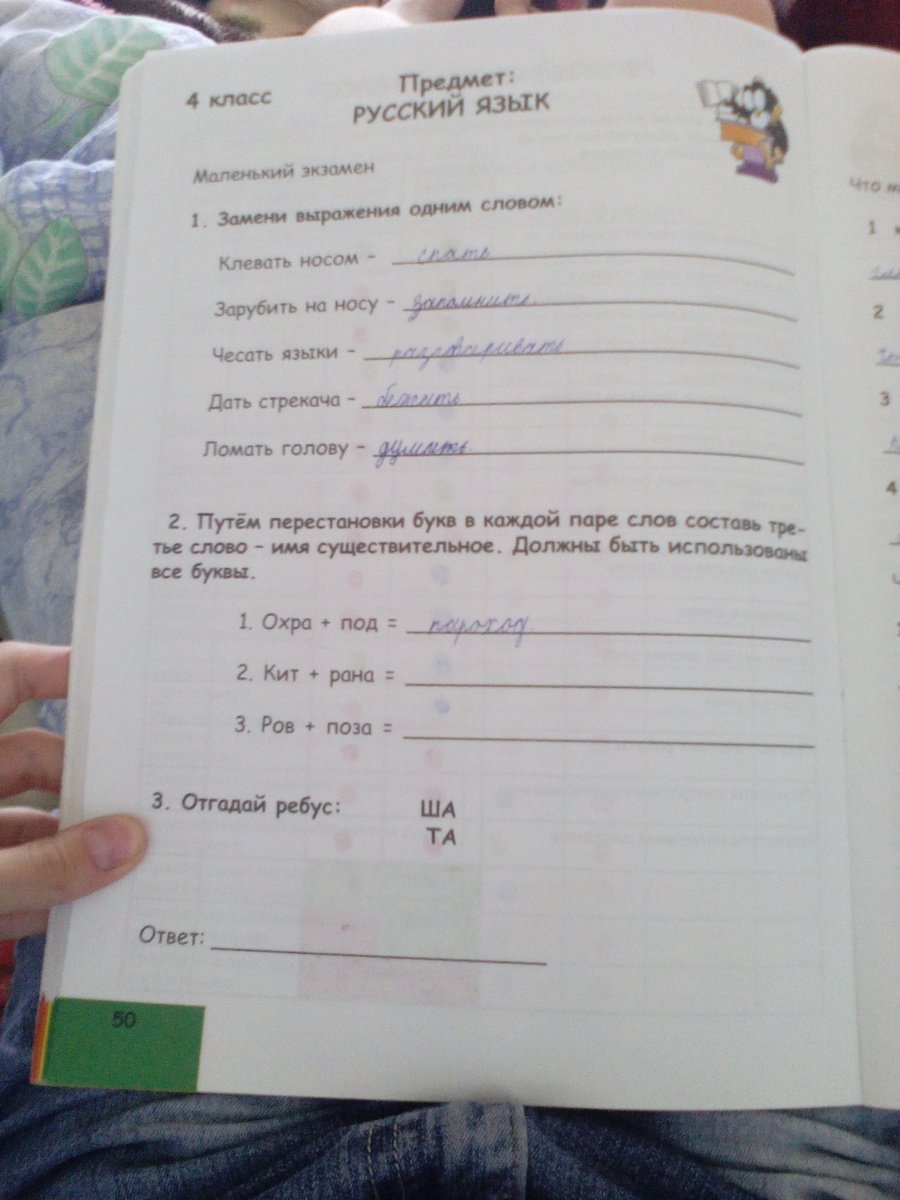 4 класс
Предмет:
РУССКИЙ ЯЗЫК
Маленький экзамен
1. Замени выражения одним словом:
Клевать носом – спать
Зарубить на носу – запомнить.
Чесать языки – разговаривать
Дать стрекача – бежать
Ломать голову – думать.
2. Путём перестановки букв в каждой паре слов составь тре-
тье слово – имя существительное. Должны быть использованы
все буквы.
1. Охра + под = пароход.
2. Кит + рана =
3. Ров + поза =
3. Отгадай ребус: ША
ТА
Ответ:
50
1
2
3
4